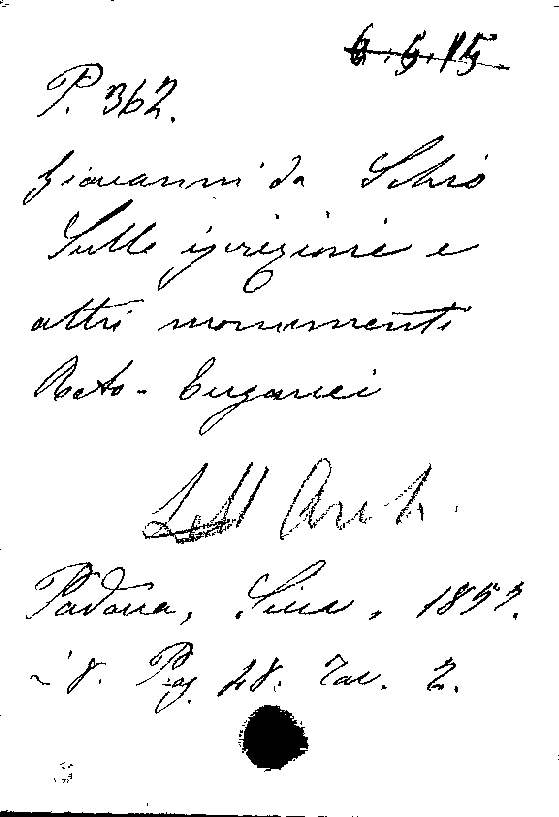 6.5.15
P. 362.
Giovanni da Schio
Sulle iscrizioni e
altri monumenti
Reto-Euganei
Lett Arch.
Padova, Sicca, 1853.
in 8. Pag. 48. Tav. 2.